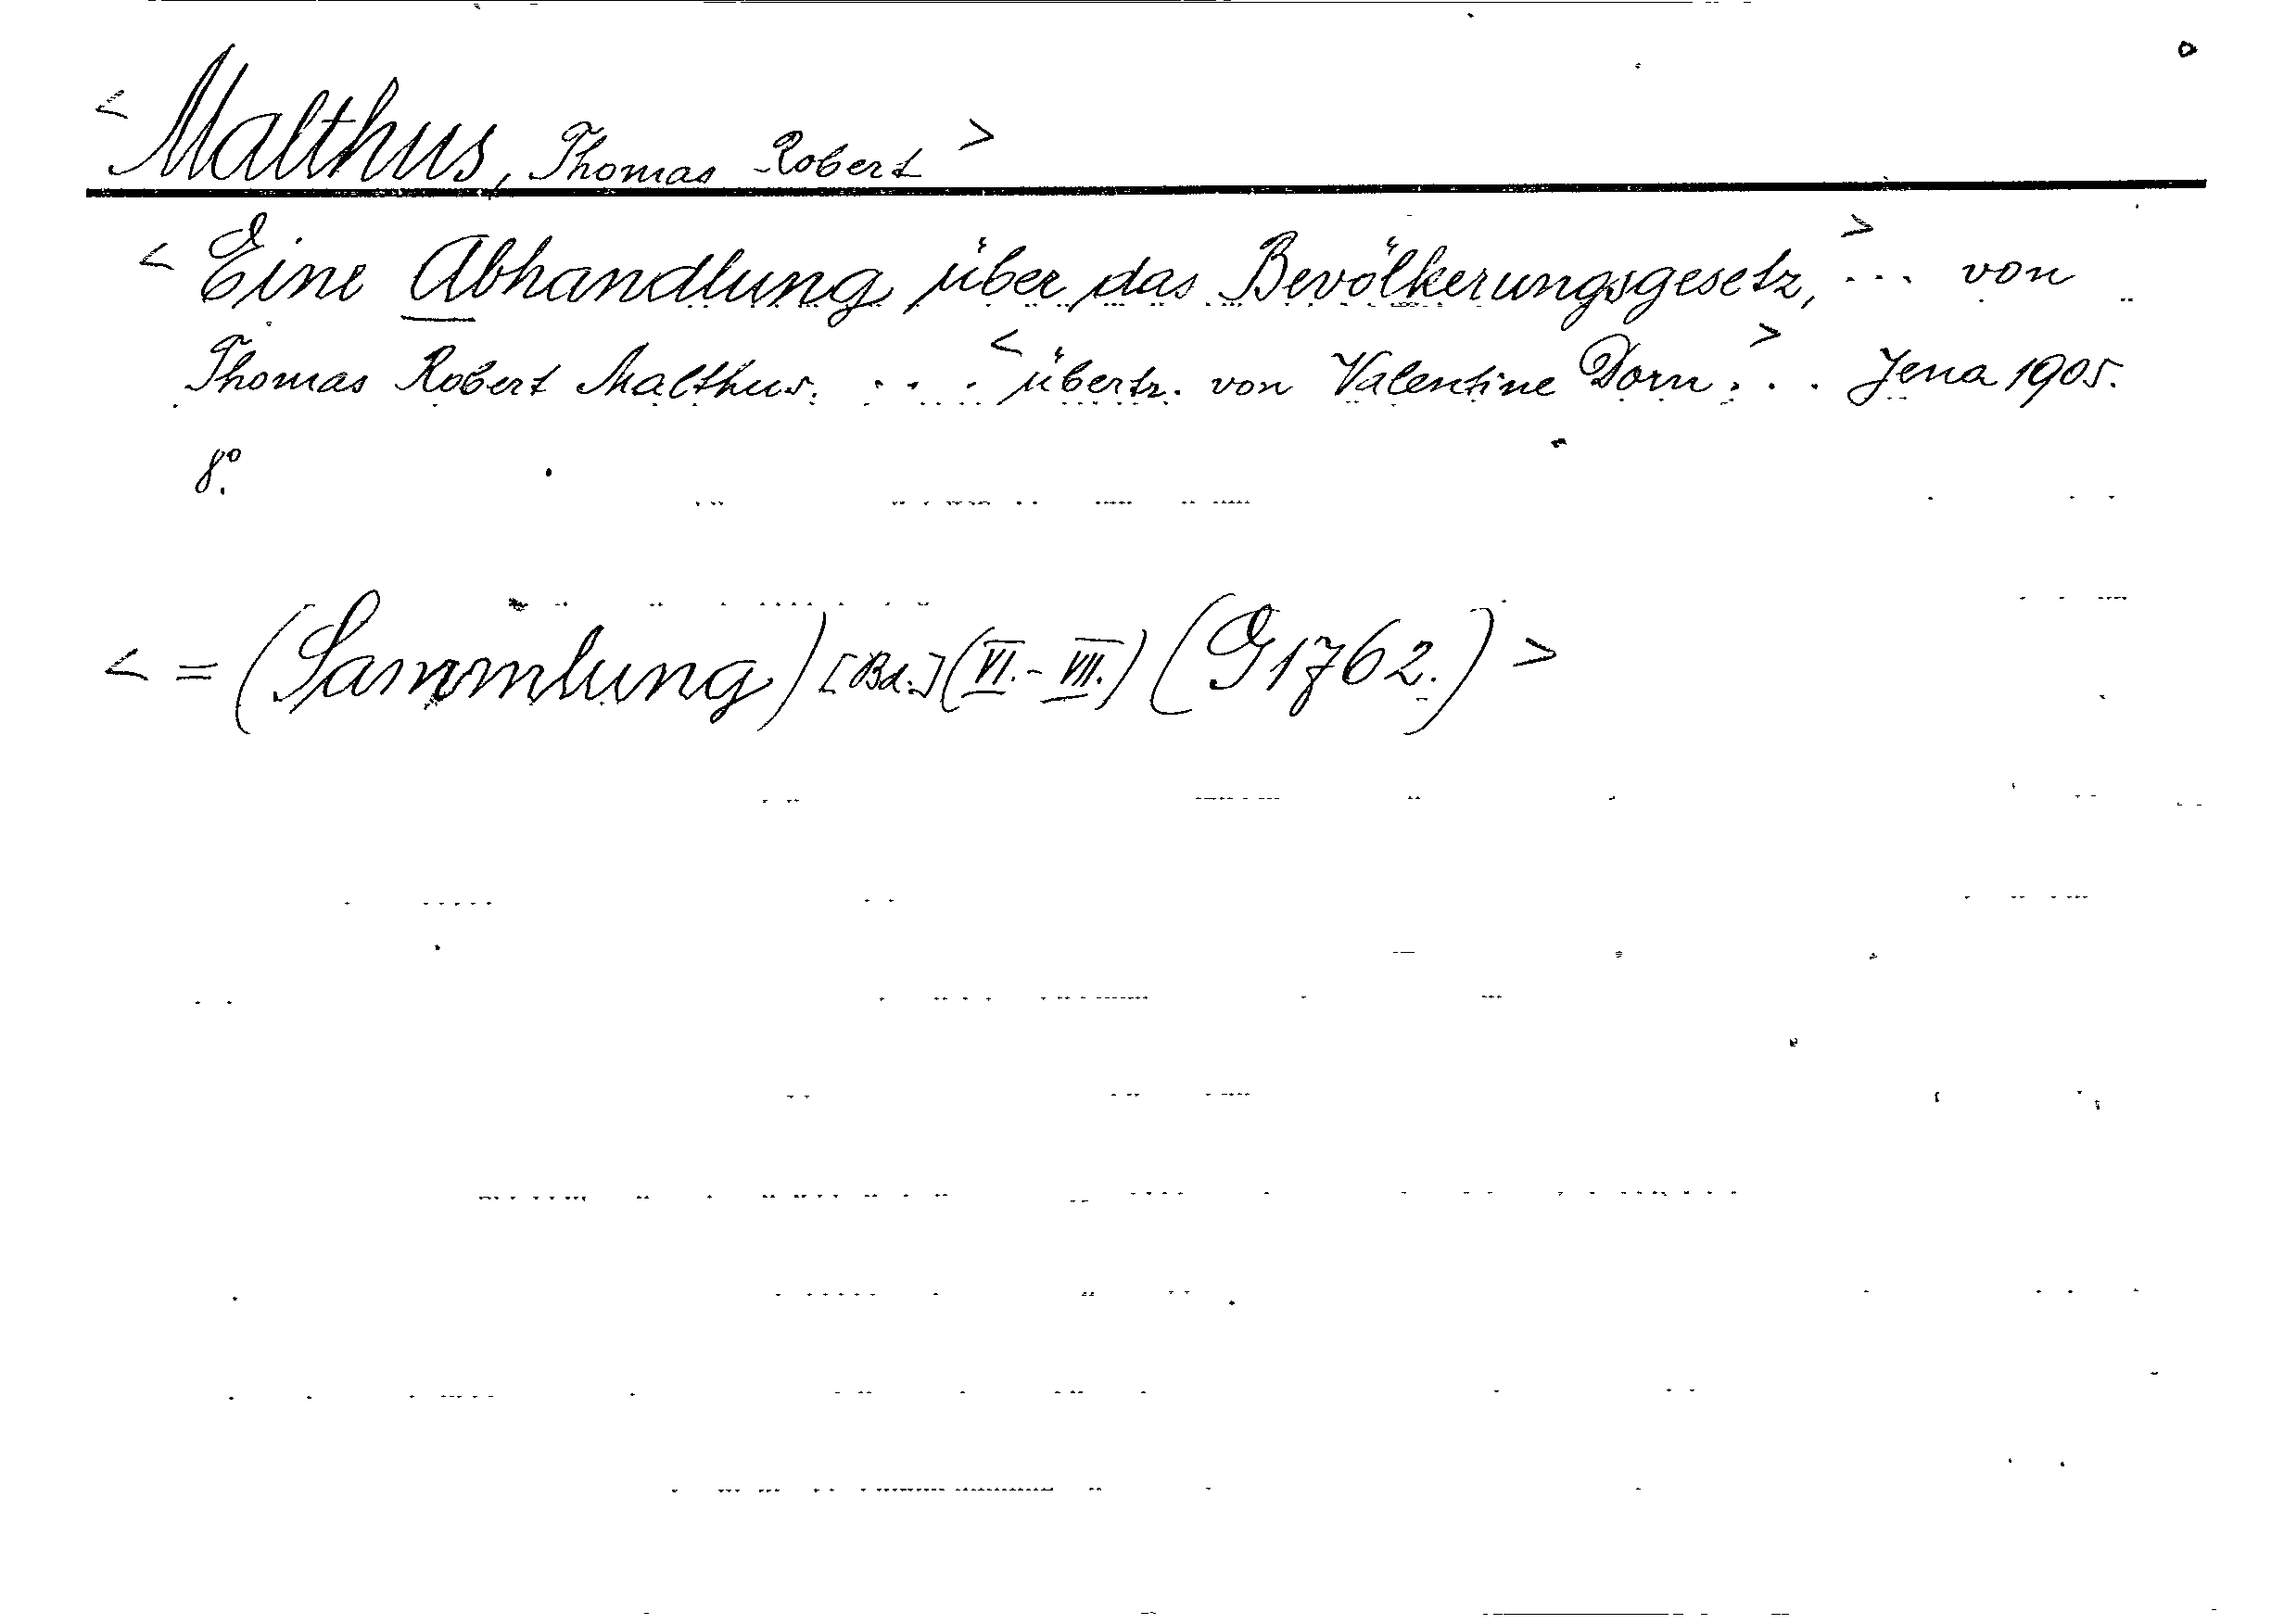 < Malthus, Thomas Robert >
< Eine Abhandlung über das Bevölkerungsgesetz, > ... von
Thomas Robert Malthus. ... < übertr. von Valentine Dorn > ... Jena 1905.
8°.
< = (Sammlung) [Bd.] (VI. - VII.) (G 1762.) >